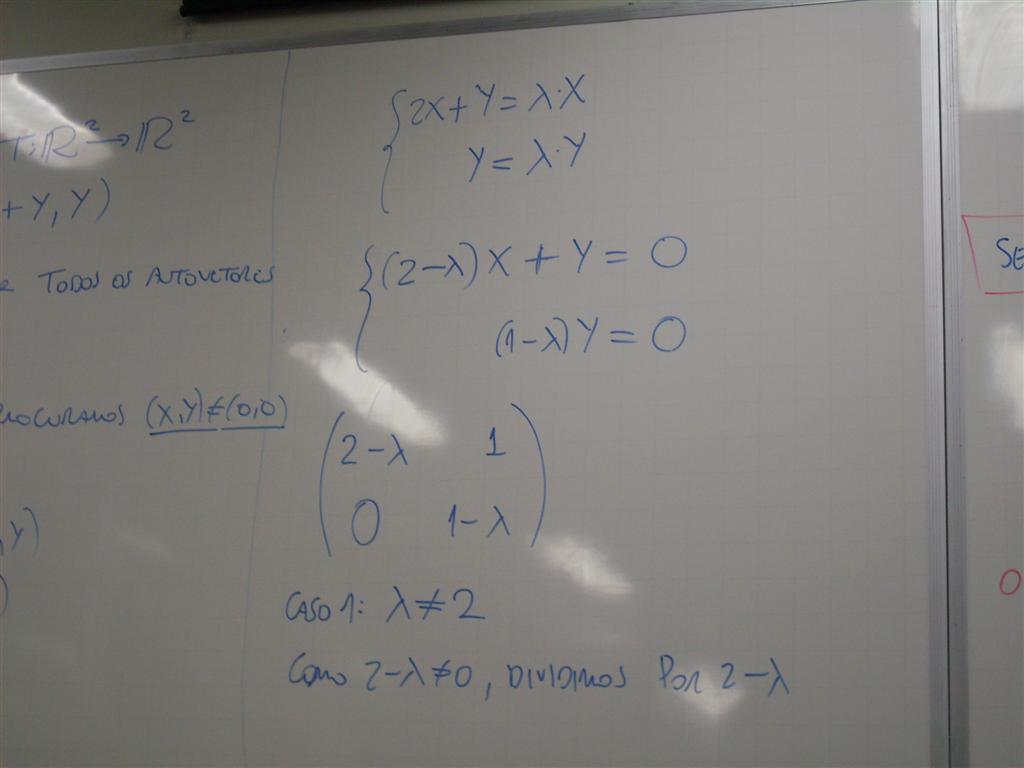 T:ℝ² → ℝ²
+ Y, Y)
TODOS OS AUTOVETORES
PROCURAMOS (X,Y)≠(0,0)
,Y)
)
{2X + Y = λ·X
Y = λ·Y
{(2-λ)X + Y = 0
(1-λ)Y = 0
(2-λ 1
0 1-λ)
CASO 1: λ ≠ 2
COMO 2-λ≠0, DIVIDIMOS POR 2-λ
SE
O